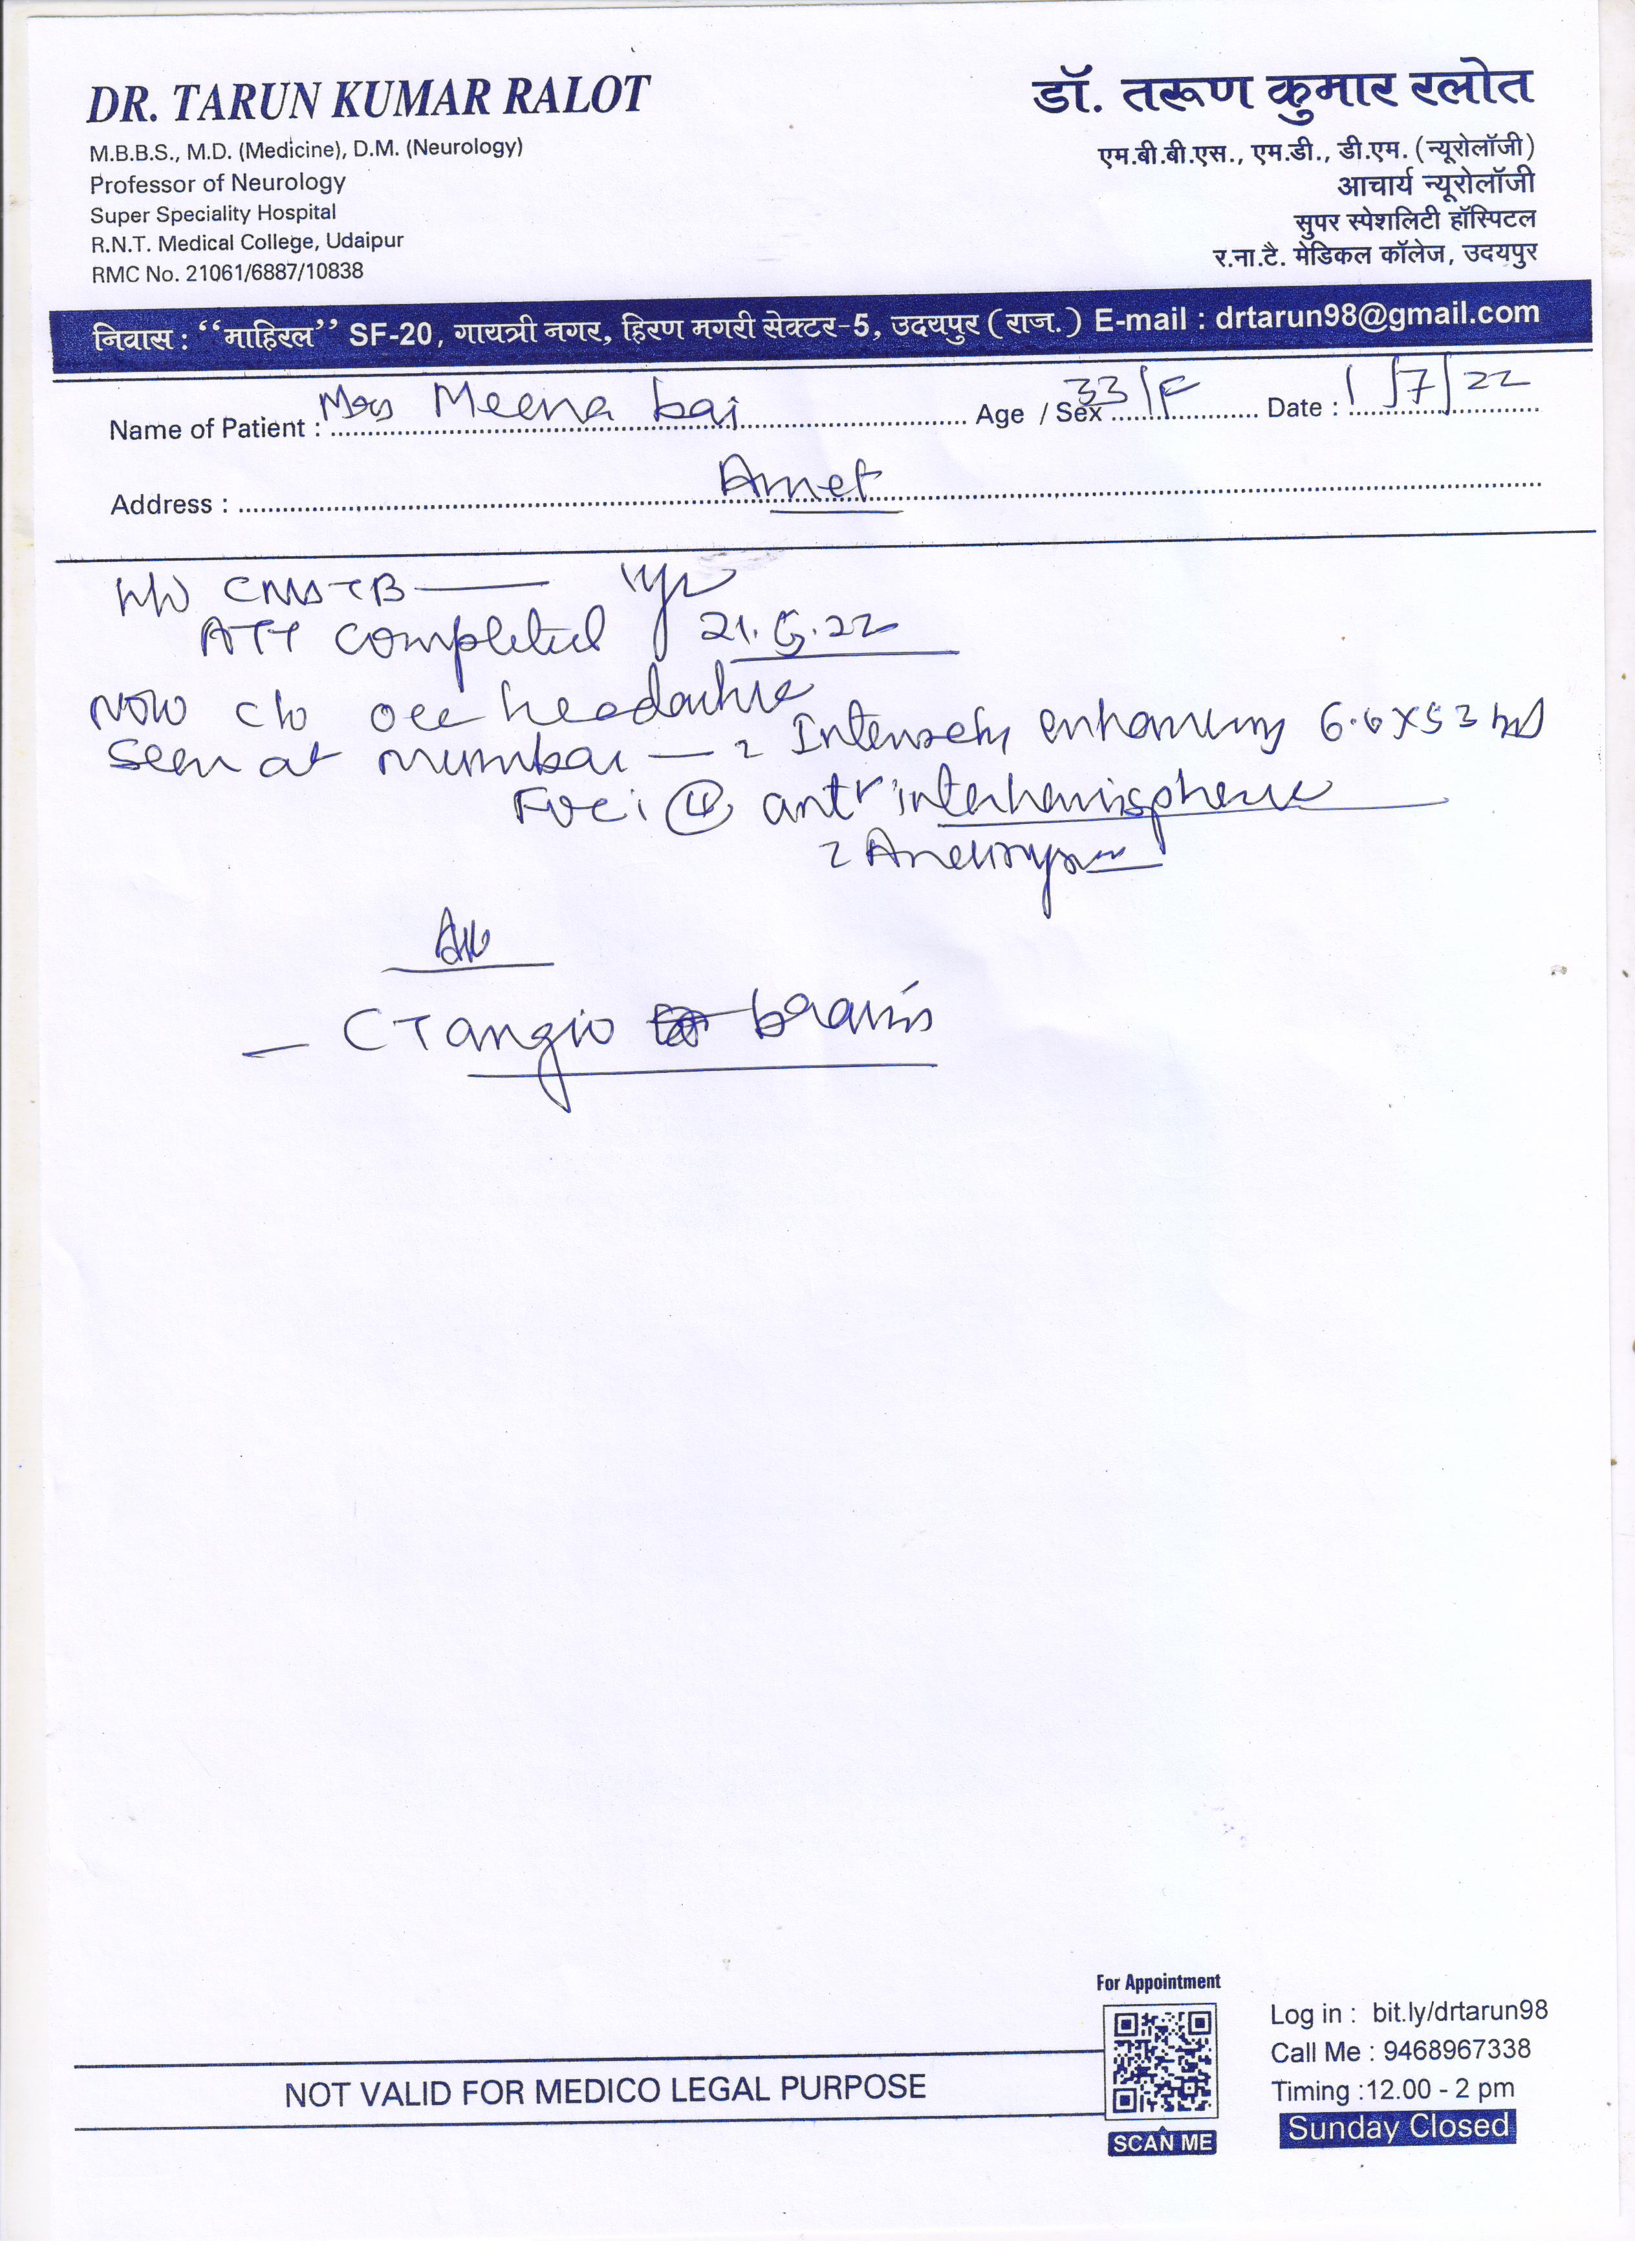 DR. TARUN KUMAR RALOT
M.B.B.S., M.D. (Medicine), D.M. (Neurology)
Professor of Neurology
Super Speciality Hospital
R.N.T. Medical College, Udaipur
RMC No. 21061/6887/10838
डॉ. तरूण कुमार रलोत
एम.बी.बी.एस., एम.डी., डी.एम. (न्यूरोलॉजी)
आचार्य न्यूरोलॉजी
सुपर स्पेशलिटी हॉस्पिटल
र.ना.टै. मेडिकल कॉलेज, उदयपुर
निवास : “माहिरल” SF-20, गायत्री नगर, हिरण मगरी सेक्टर-5, उदयपुर (राज.) E-mail : drtarun98@gmail.com
Name of Patient : Mrs Meena bai Age / Sex 33/F Date : 1/7/22
Address : Amet
CNS TB — 1yr
ATT completed 21.5.22
Now c/o occ headache
seen at mumbai — 2 Intensely enhancing 6.6x5.3
Foci antr interhemispheric
? Aneurysm
Adv
— CT angio brain
For Appointment
SCAN ME
Log in : bit.ly/drtarun98
Call Me : 9468967338
Timing :12.00 - 2 pm
Sunday Closed
NOT VALID FOR MEDICO LEGAL PURPOSE